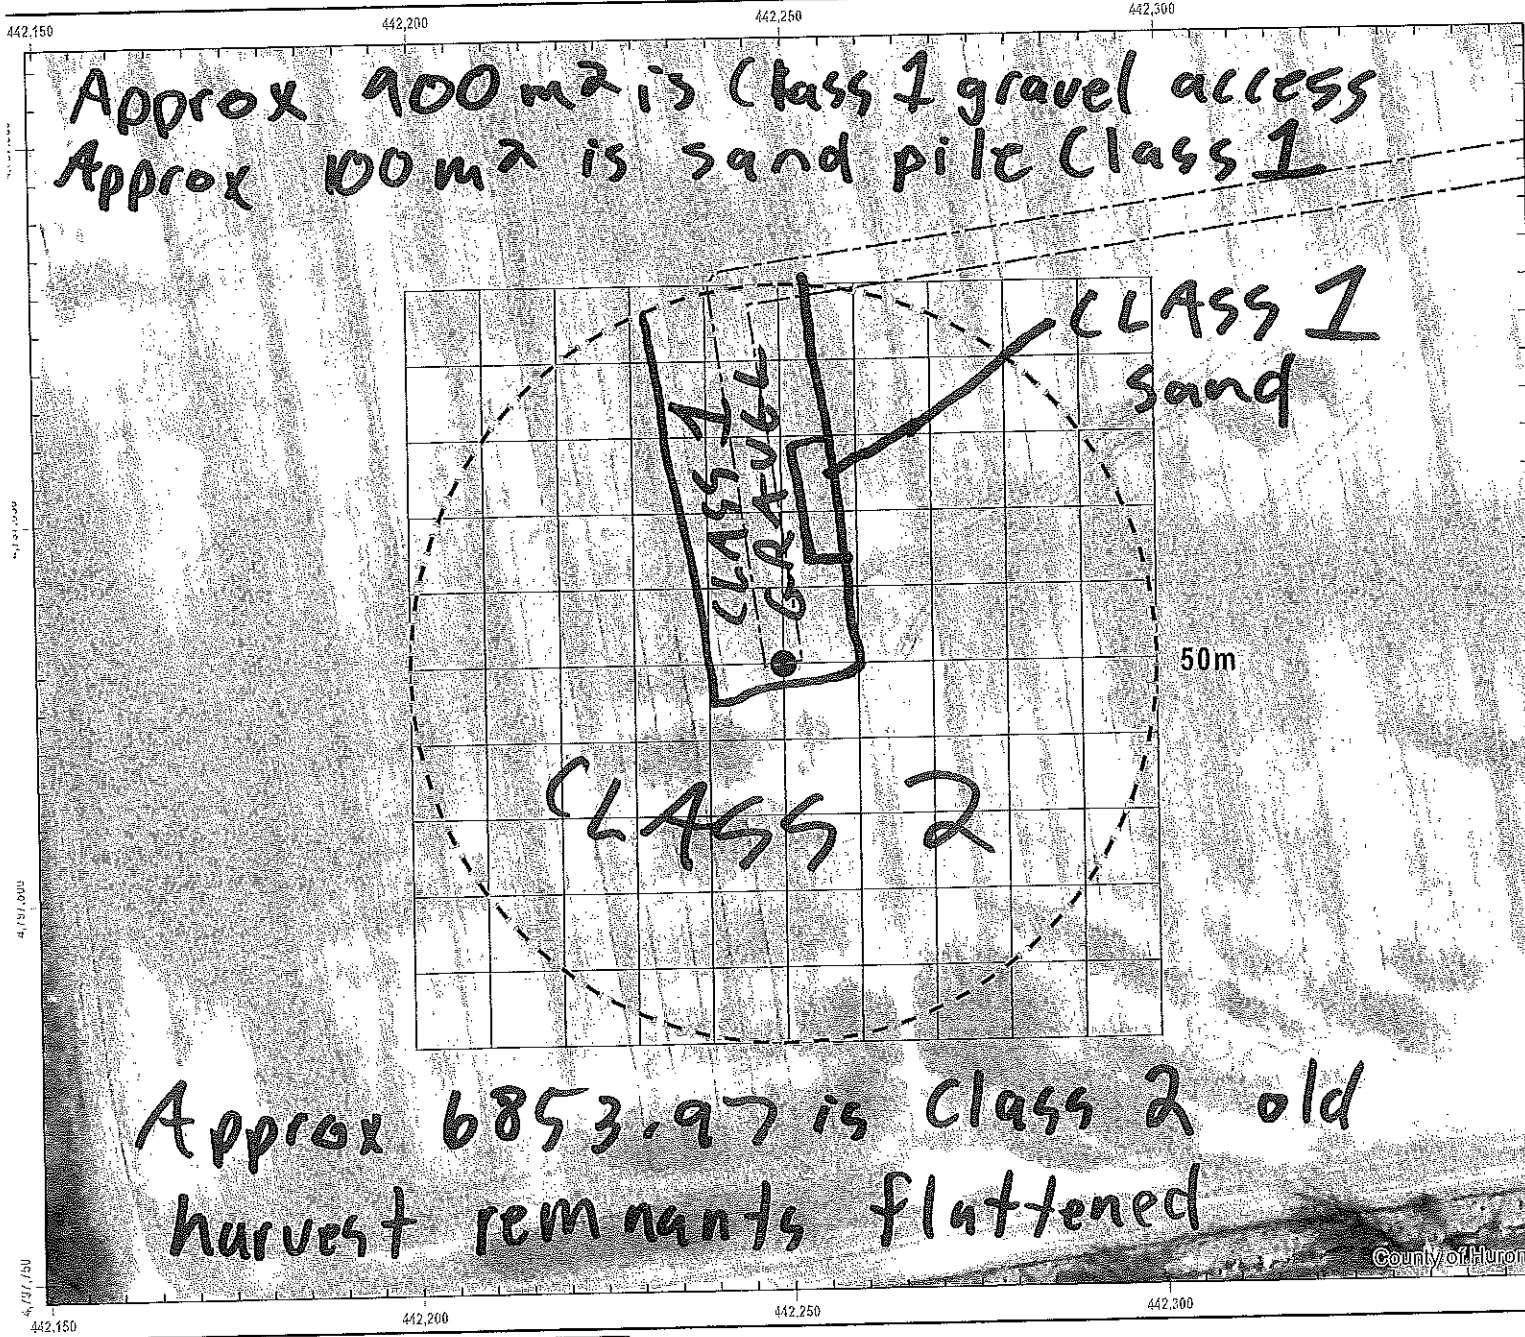 442,150 442,200 442,250 442,300
Approx 900 m2 is Class 1 gravel access
Approx 100 m2 is sand pile Class 1
CLASS 1
sand
CLASS 1
GRAVEL
50m
CLASS 2
Approx 6853.97 is Class 2 old
harvest remnants flattened
County of Huron
442,150 442,200 442,250 442,300